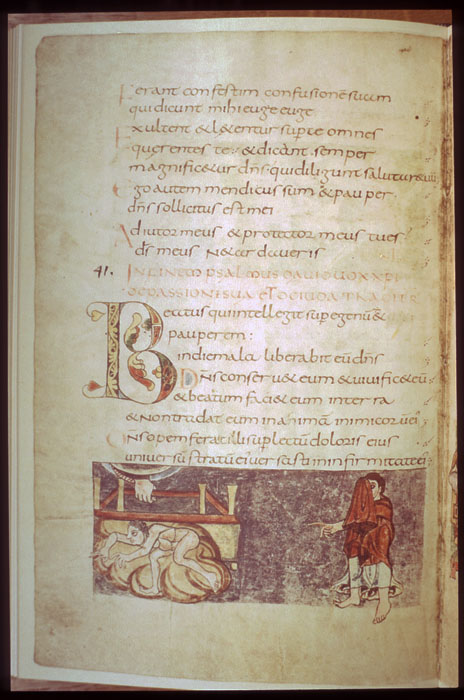 Ferant confestim confusionē suam
qui dicunt mihi euge euge
Exultent & l&entur sup te omnes
querentes te · & dicant semper
magnific&ur dn̄s · qui diligunt salutare
Ego autem mendicus sum & pauper
dn̄s sollicitus est mei
Adiutor meus & protector meus tu es
ds̄ meus ne tardaveris
41. IN FINEM PSALMUS DAVID
Beatus qui intellegit sup egenū &
pauperem:
in die mala liberabit eū dn̄s
Dn̄s conserv& eum & vivific& eū
& beatum faci& eum in terra
& non tradat eum in animā inimicor
Dn̄s opem ferat illi sup lectū doloris eius
universū stratū ei versasti in infirmitate